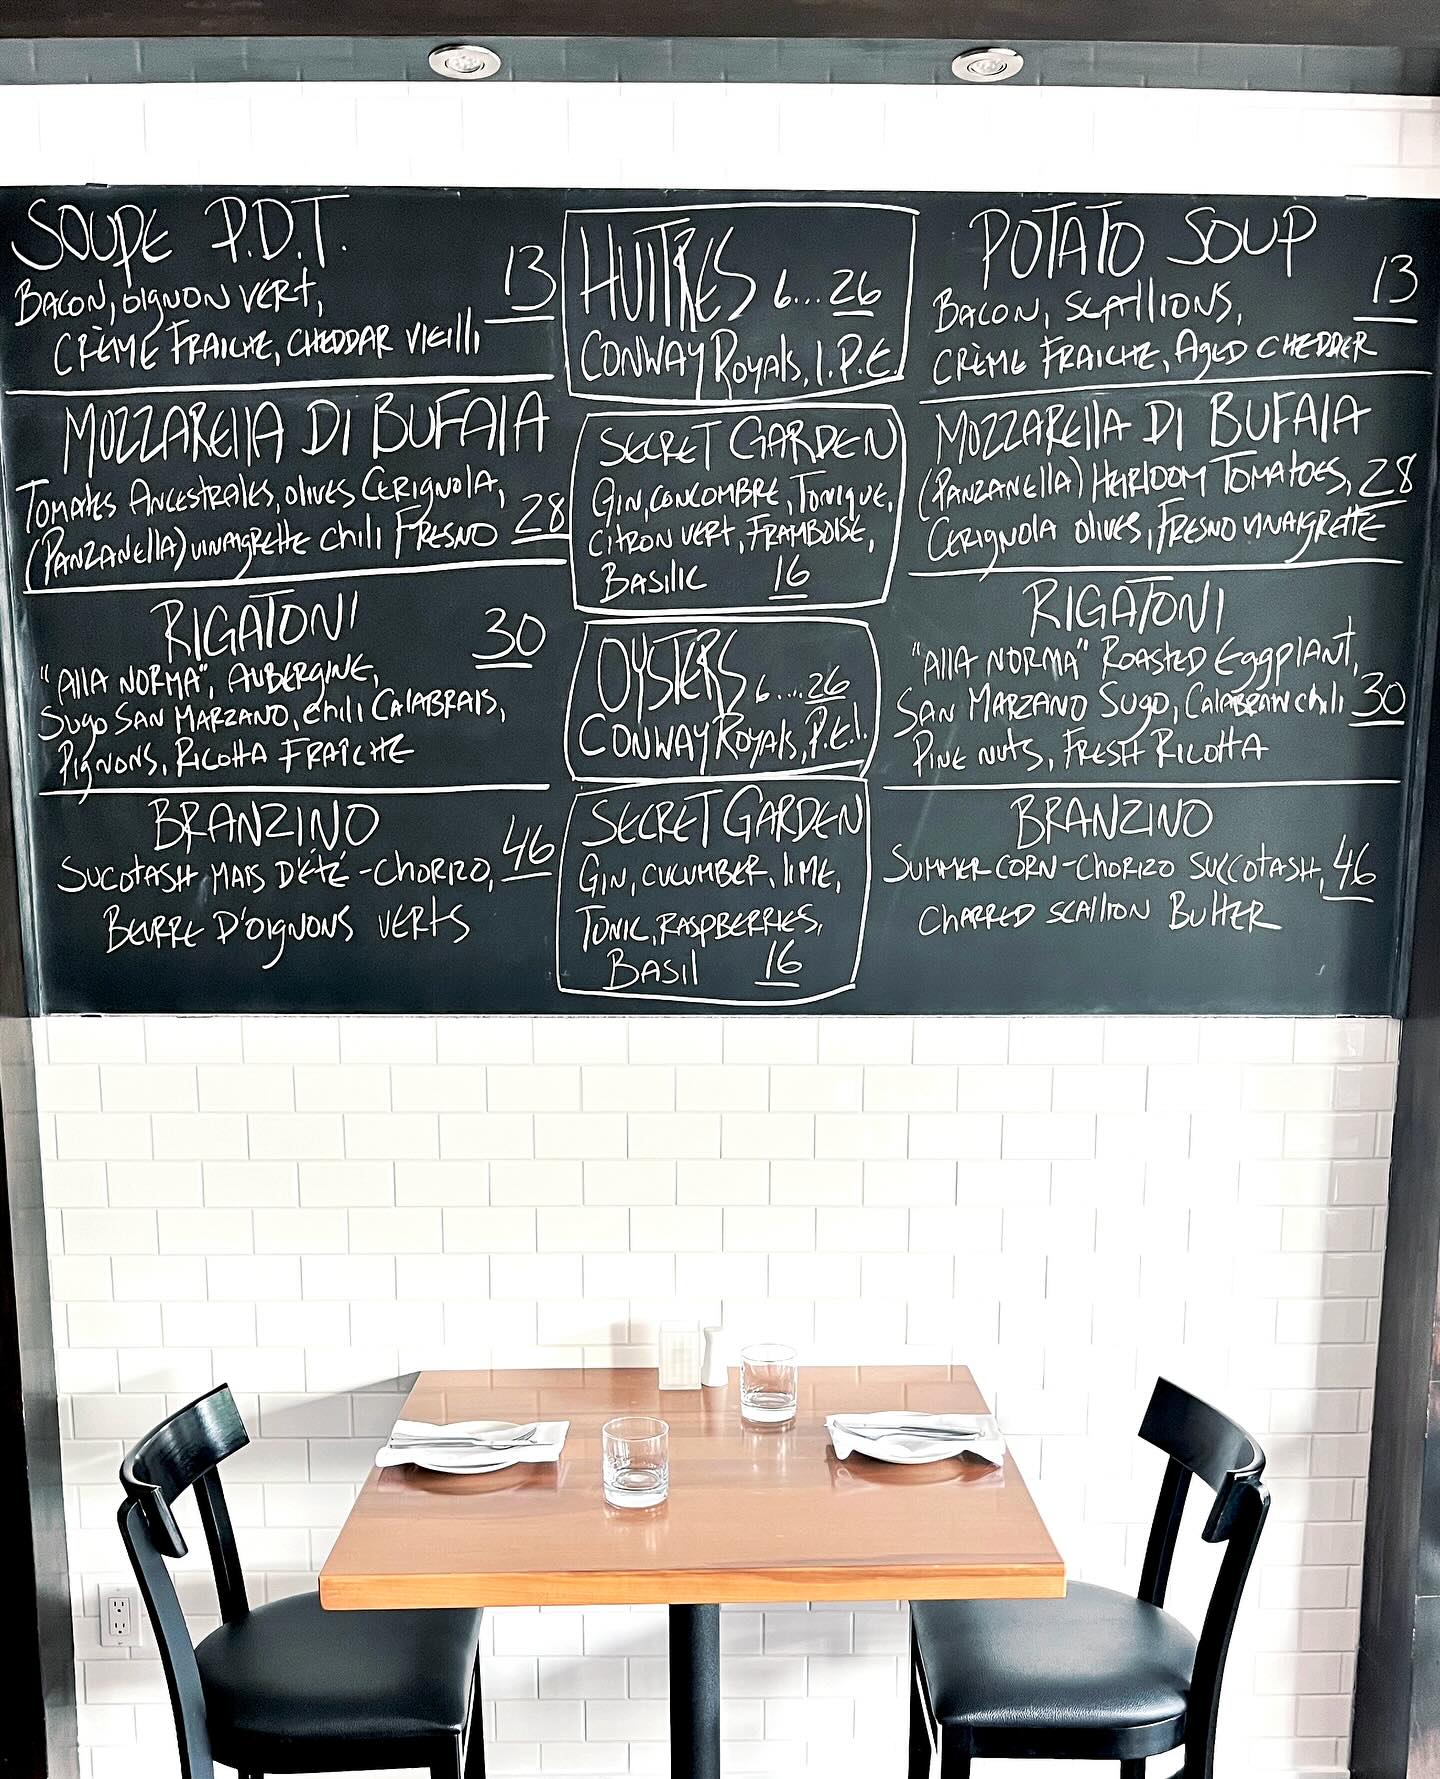 SOUPE P.D.T.
BACON, OIGNON VERT, 13
CRÈME FRAICHE, CHEDDAR VIEILLI
MOZZARELLA DI BUFALA
TOMATES ANCESTRALES, OLIVES CERIGNOLA,
(PANZANELLA) VINAIGRETTE CHILI FRESNO 28
RIGATONI 30
"ALLA NORMA", AUBERGINE,
SUGO SAN MARZANO, CHILI CALABRAIS,
PIGNONS, RICOTTA FRAÎCHE
BRANZINO
SUCOTASH MAIS D'ÉTÉ - CHORIZO, 46
BEURRE D'OIGNONS VERTS
HUITRES 6...26
CONWAY ROYALS, I.P.E.
SECRET GARDEN
GIN, CONCOMBRE, TONIQUE,
CITRON VERT, FRAMBOISE,
BASILIC 16
OYSTERS 6....26
CONWAY ROYALS, P.E.I.
SECRET GARDEN
GIN, CUCUMBER, LIME,
TONIC, RASPBERRIES,
BASIL 16
POTATO SOUP
BACON, SCALLIONS, 13
CRÈME FRAICHE, AGED CHEDDER
MOZZARELLA DI BUFALA
(PANZANELLA) HEIRLOOM TOMATOES, 28
CERIGNOLA OLIVES, FRESNO VINAIGRETTE
RIGATONI
"ALLA NORMA" ROASTED EGGPLANT,
SAN MARZANO SUGO, CALABRIAN CHILI 30
PINE NUTS, FRESH RICOTTA
BRANZINO
SUMMER CORN - CHORIZO SUCCOTASH, 46
CHARRED SCALLION BUTTER